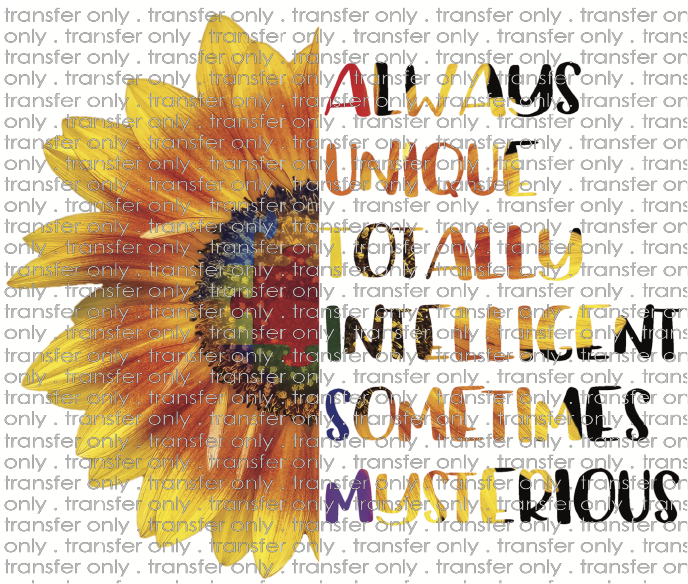 ALWAYS
UNIQUE
TOTALLY
INTELLIGENT
SOMETIMES
MYSTERIOUS
transfer only . transfer only . transfer only . transfer only . transfer only